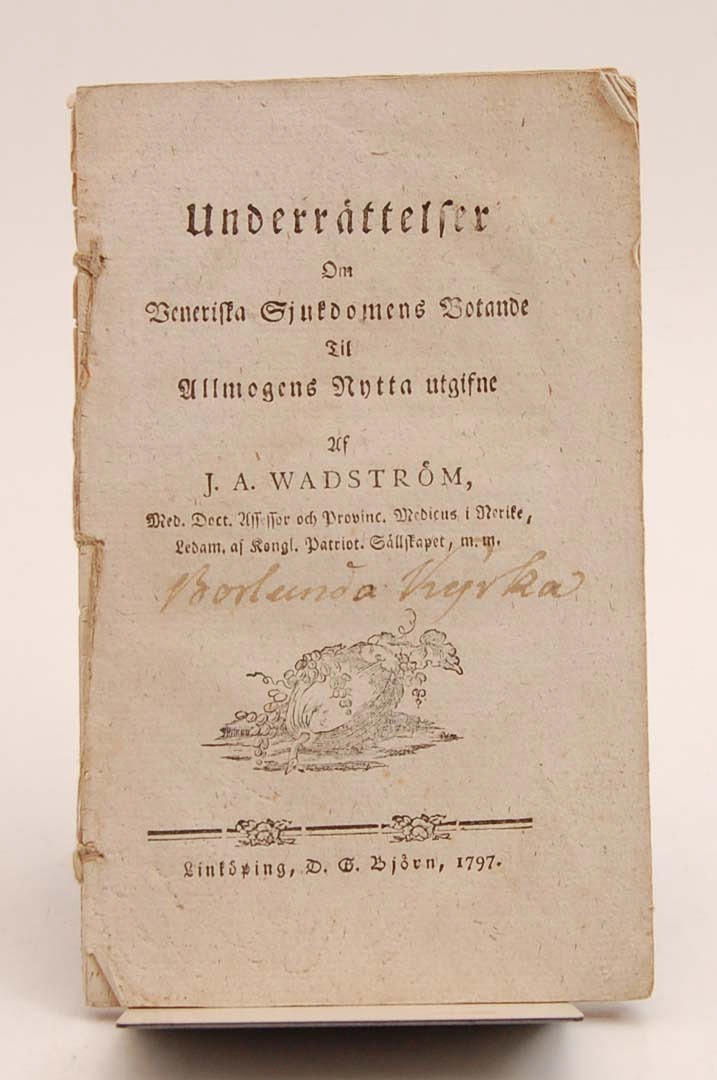 Underrättelser
Om
Veneriska Sjukdomens Botande
Til
Allmogens Nytta utgifne
Af
J. A. WADSTRÖM,
Med. Doct. Assessor och Provinc. Medicus i Nerike,
Ledam. af Kongl. Patriot. Sällskapet, m. m.
Borlunda Kyrka
Linköping, D. G. Björn, 1797.